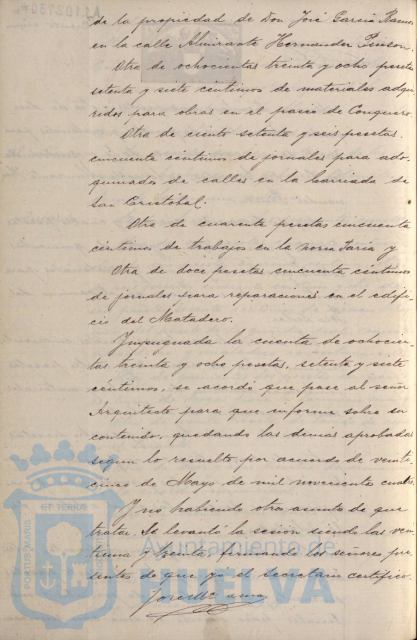 de la propiedad de Don José García Ramos
en la calle Almirante Hernandez Pinson.
Otra de ochocientas treinta y ocho pesetas
setenta y siete centimos de materiales adqui
ridos para obras en el paseo de Conquero.
Otra de ciento setenta y seis pesetas,
cincuenta centimos de jornales para ado-
quinados de calles en la barriada de
San Cristobal.
Otra de cuarenta pesetas cincuenta
céntimos de trabajos en la noria y
Otra de doce pesetas cincuenta centimos
de jornales para reparaciones en el edifi
cio del Matadero.
Impugnada la cuenta de ochocien-
tas treinta y ocho pesetas, setenta y siete
céntimos, se acordó que pase al señor
Arquitecto para que informe sobre su
contenido, quedando las demas aprobadas
segun lo resuelto por acuerdo de veinte
cinco de Mayo de mil novecientos cuatro.
Y no habiendo otro asunto de que
tratar, se levantó la sesión siendo las vein
tiuna y treinta, firmando los señores pre
sentes de que yo el secretario certifico.
PORTUS MARIS
ET TERRAE
Ayuntamiento de
HUELVA